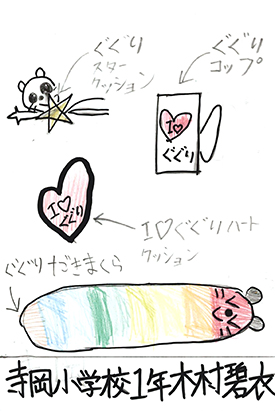 ぐぐり
スター
クッション
ぐぐり
コップ
I♡
ぐぐり
I♡
ぐぐり
I♡ぐぐりハート
クッション
ぐぐりだきまくら
寺岡小学校1年木村碧衣